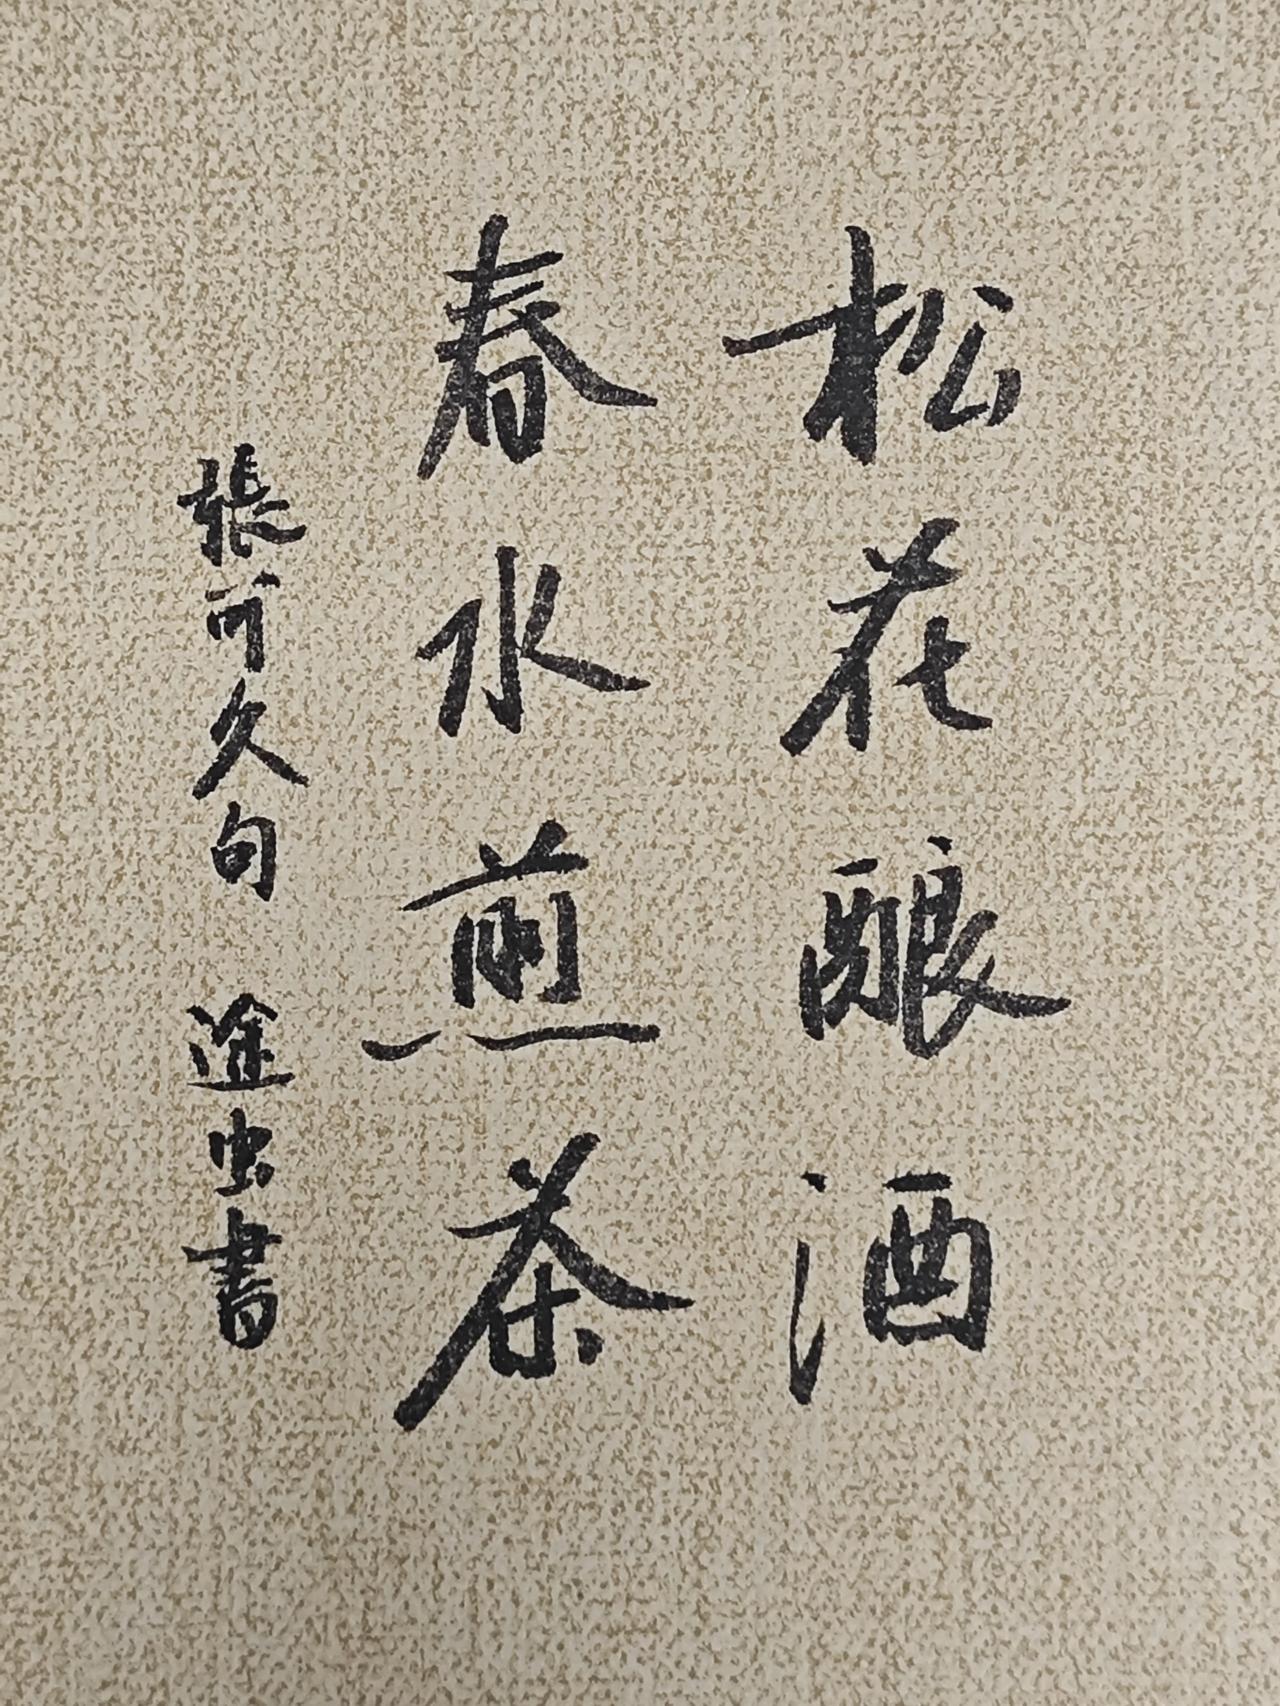 松花酿酒
春水煎茶
張可久句 途虫書